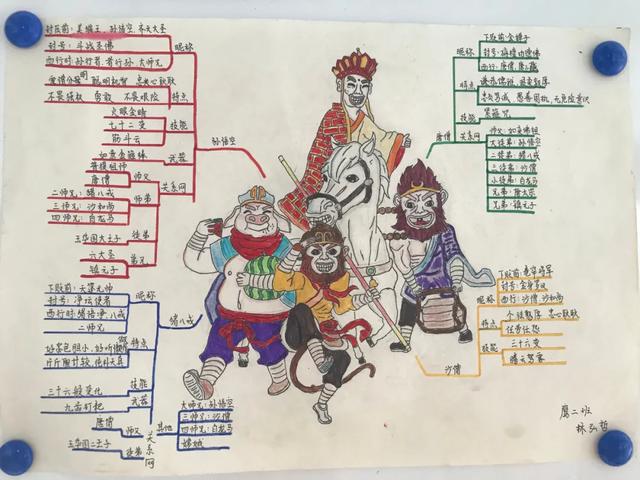 封压前:美猴王、孙悟空、齐天大圣
封号:斗战圣佛
西行时:孙行者、者行孙、大师兄
昵称
聪明机智 忠心耿耿
不畏强权 勇敢 不畏艰险
特点
火眼金睛
七十二变
筋斗云
技能
如意金箍棒
武器
菩提祖师
唐僧
师父
二师兄:猪八戒
三师弟:沙和尚
四师弟:白龙马
师弟
关系网
玉华国大王子
徒弟
六大圣
镇元子
弟兄
孙悟空
下凡前:天蓬元帅
封号:净坛使者
西行时:猪悟净、八戒
二师兄
昵称
好色胆小、好吃懒做
斤斤计较、
特点
三十六般变化
技能
九齿钉耙
武器
唐僧
师父
玉华国二王子
徒弟
关系网
猪八戒
大师兄:孙悟空
三师弟:沙僧
四师弟:白龙马
嫦娥
其他
下凡前:金蝉子
封号:旃檀功德佛
西行:唐僧、唐三藏
昵称
特点
紧箍咒
技能
唐僧
关系网
师父:如来佛祖
大徒弟:孙悟空
二徒弟:猪八戒
三徒弟:沙僧
小徒弟:白龙马
兄弟:唐太宗
兄弟:镇元子
下凡前:卷帘将军
封号:金身罗汉
西行:沙僧、沙和尚
昵称
忠心耿耿
任劳任怨
特点
三十六变
腾云驾雾
技能
沙僧
鹰二班
林弘哲